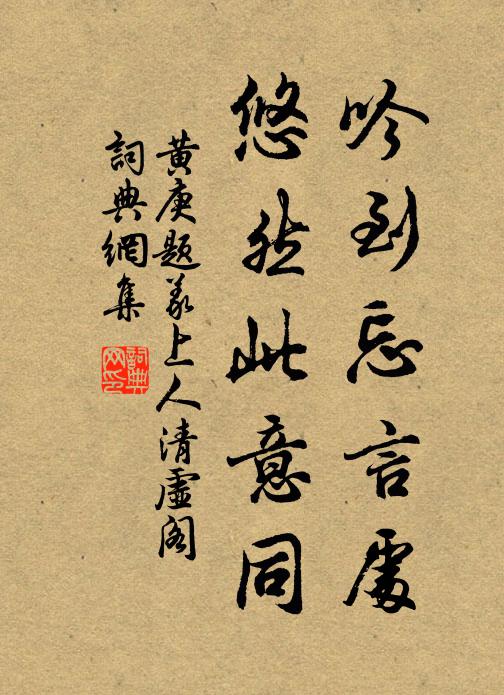 吟到忘言處
悠然此意同
黄庚題義上人清虛閣
詞典網集
詞典网印